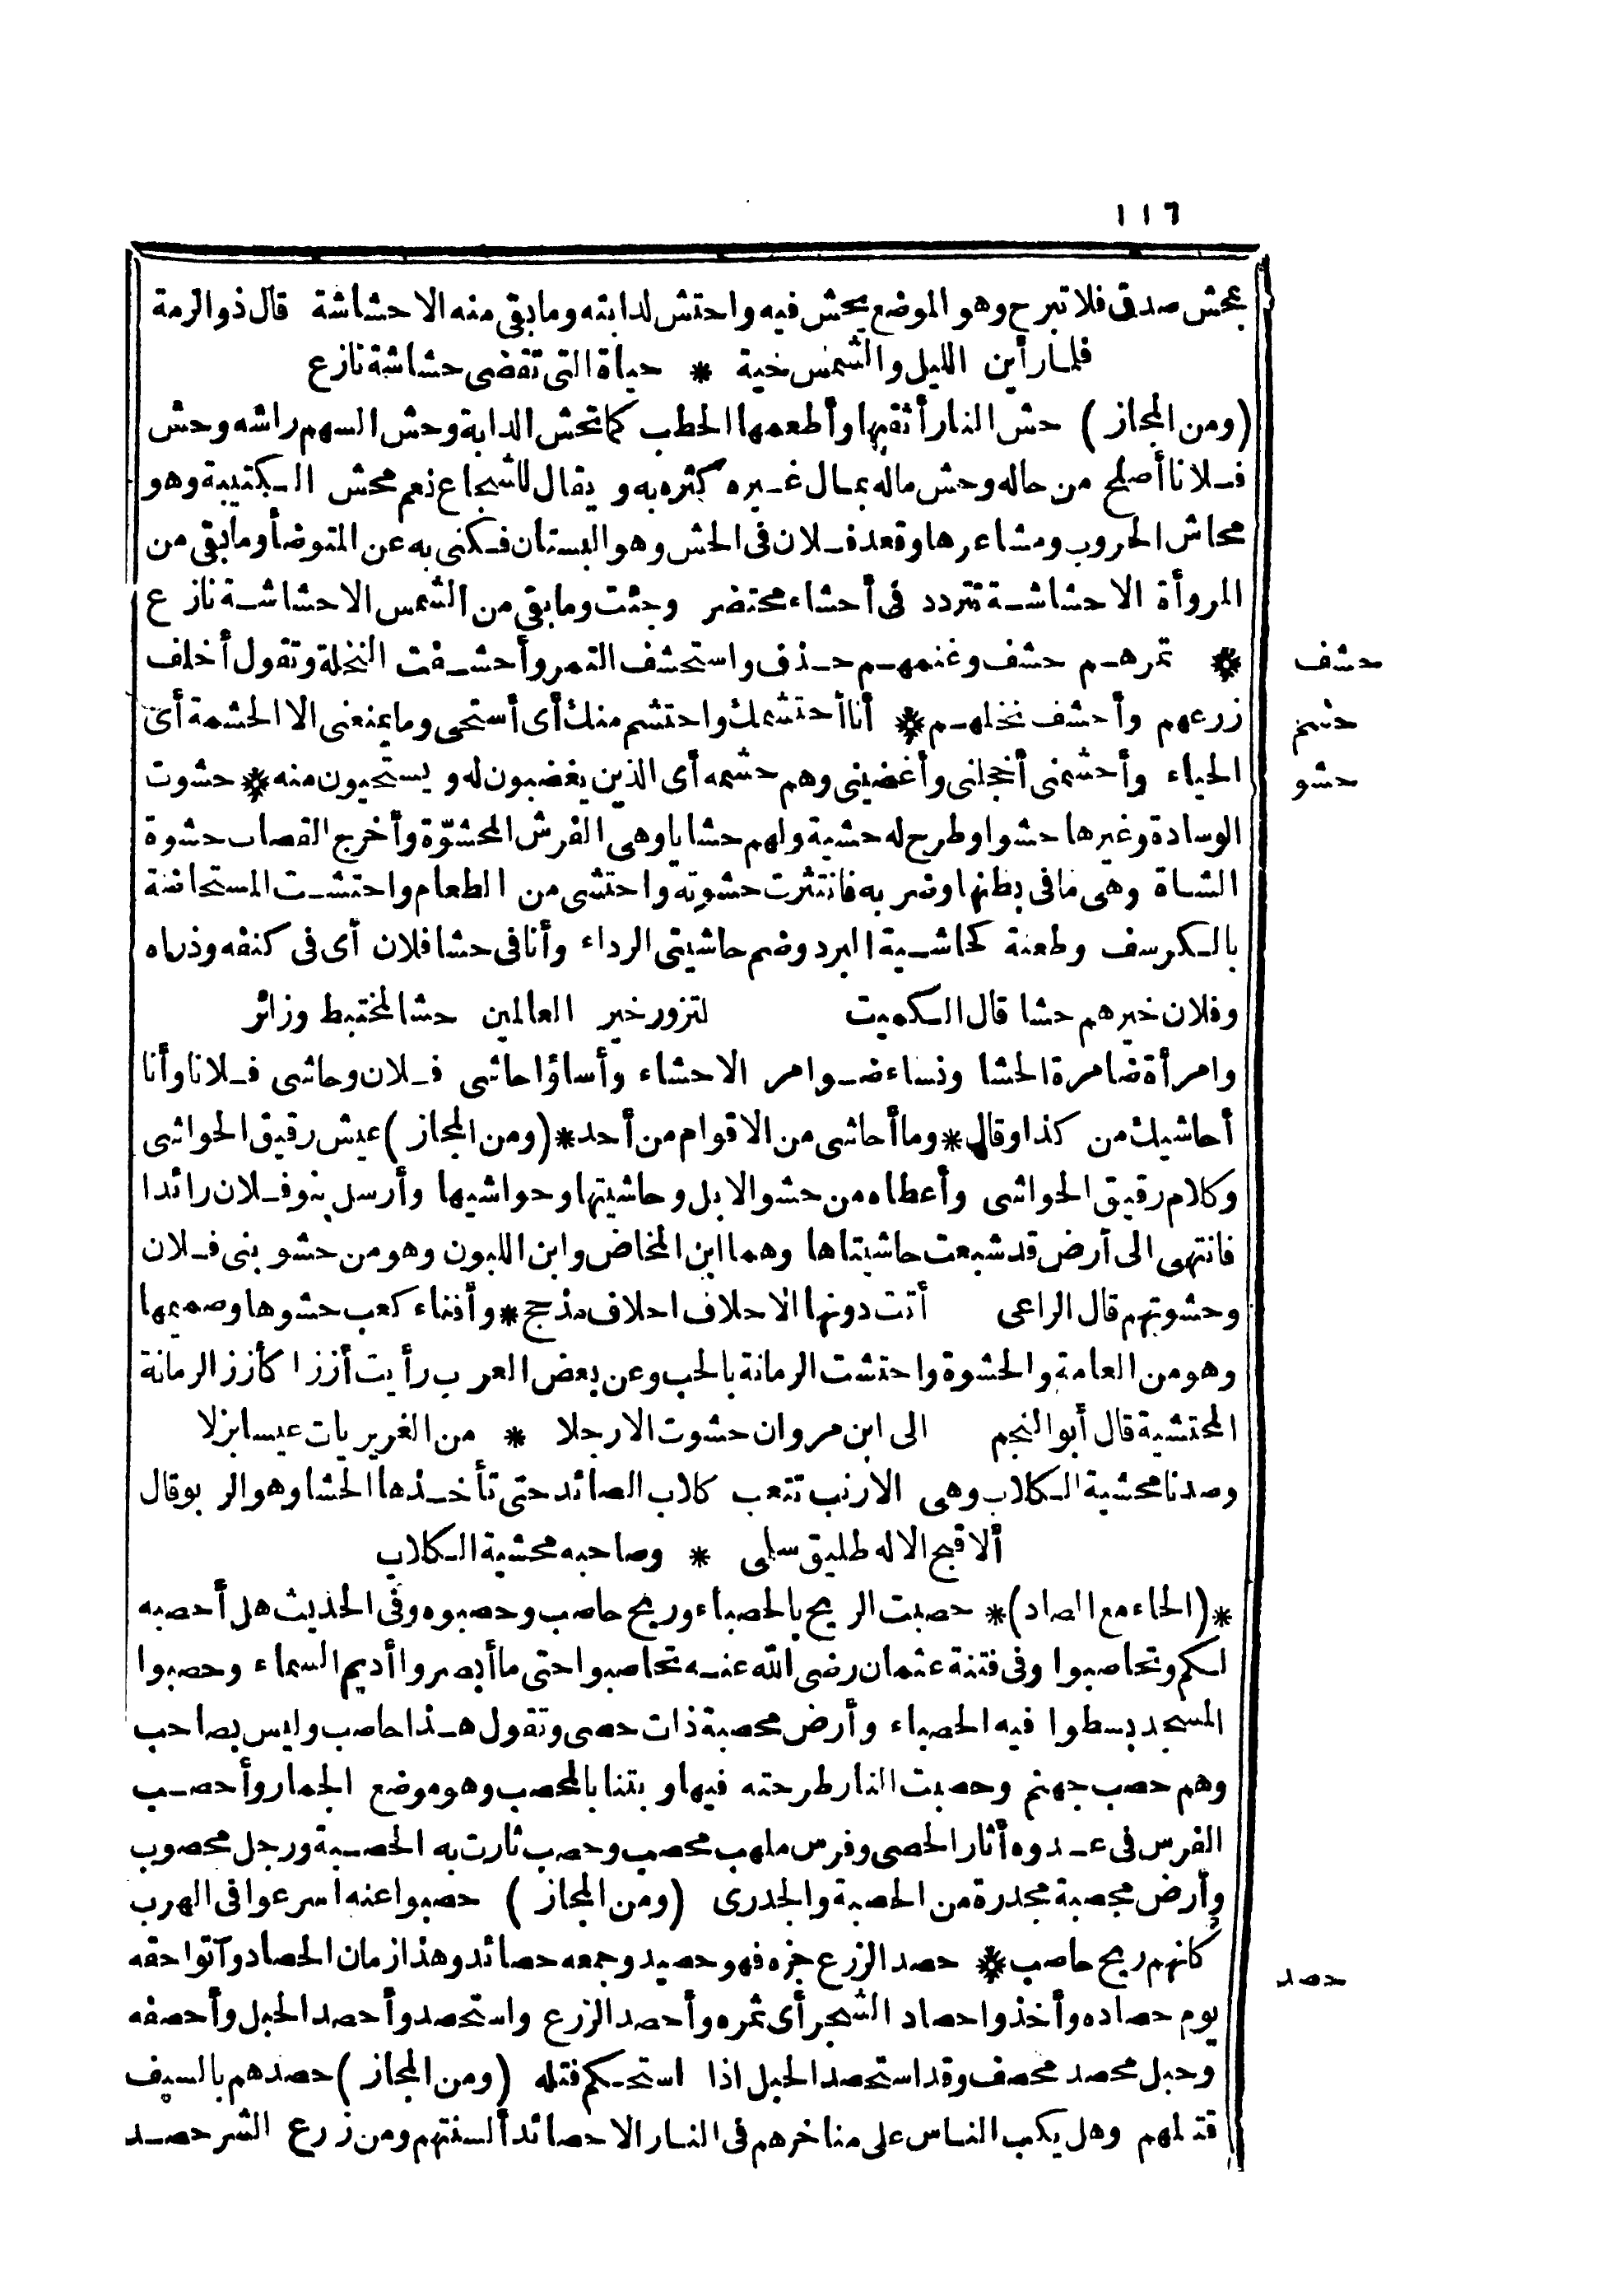 ١١٦
بمحش صدق فلا تبرح وهو الموضع يحش فيه واحتش لدابته وما بقى منه الا حشاشة قال ذو الرمة
فلما رأين الليل والشمس حية * حياة التى تقضى حشاشة نازع
(ومن المجاز) حش النار أثقبها وأطعمها الحطب كما تحش الدابة وحش السهم راشه وحش
فلانا أصلح من حاله وحش ماله بمال غيره كثره به ويقال للشجاع نعم محش الكتيبة وهو
محاش الحروب ومشاعرها وقعد فلان فى الحش وهو البستان فكنى به عن المتوضأ وما بقى من
المروأة الا حشاشة تتردد فى أحشاء محتضر وجئت وما بقى من الشمس الا حشاشة نازع
حشف
* تمرهم حشف وغنمهم حذف واستحشف التمر وأحشفت النخلة وتقول أخلف
حشم
زرعهم وأحشف نخلهم * أنا أحتشمك واحتشم منك أى أستحى وما يمنعنى الا الحشمة أى
حشو
الحياء وأحشمنى أخجلنى وأغضبنى وهم حشمه أى الذين يغضبون له ويستحيون منه * حشوت
الوسادة وغيرها حشوا وطرح له حشية ولهم حشايا وهى الفرش المحشوّة وأخرج القصاب حشوة
الشاة وهى ما فى بطنها وضربه فانتثرت حشوته واحتشى من الطعام واحتشت المستحاضة
بالكرسف وطعنة كحاشية البرد وضم حاشيتى الرداء وأنا فى حشا فلان أى فى كنفه وذراه
وفلان خيرهم حشا قال الكميت لتزور خير العالمين حشا لمختبط وزائر
وامرأة ضامرة الحشا ونساء ضوامر الاحشاء وأساؤا حاشى فلان وحاشى فلانا وأنا
أحاشيك من كذا وقال * وما أحاشى من الاقوام من أحد * (ومن المجاز) عيش رقيق الحواشى
وكلام رقيق الحواشى وأعطاه من حشو الابل وحاشيتها وحواشيها وأرسل بنو فلان رائدا
فانتهى الى أرض قد شبعت حاشيتاها وهما ابن المخاض وابن اللبون وهو من حشو بنى فلان
وحشوتهم قال الراعى أتت دونها الاحلاف احلاف مذحج * وأفناء كعب حشوها وصميمها
وهو من العامة والحشوة واحتشت الرمانة بالحب وعن بعض العرب رأيت أززا كأزز الرمانة
المحتشية قال أبو النجم الى ابن مروان حشوت الارجلا * من الغريريات عيسا بزلا
وصدنا محشية الكلاب وهى الارنب تتعب كلاب الصائد حتى تأخذها الحشا وهو الربو قال
ألا قبح الاله طليق سلمى * وصاحبه محشية الكلاب
*(الحاء مع الصاد)* حصبت الريح بالحصباء وريح حاصب وحصبوه وفى الحديث هل أحصبه
لكم وتحاصبوا وفى فتنة عثمان رضى الله عنه تحاصبوا حتى ما أبصروا أديم السماء وحصبوا
المسجد بسطوا فيه الحصباء وأرض محصبة ذات حصى وتقول هذا حاصب وليس بصاحب
وهم حصب جهنم وحصبت النار طرحته فيها وبتنا بالمحصب وهو موضع الجمار وأحصب
الفرس فى عدوه أثار الحصى وفرس ملهب محصب وحصب ثارت به الحصبة ورجل محصوب
وأرض محصبة مجدرة من الحصبة والجدرى (ومن المجاز) حصبوا عنه اسرعوا فى الهرب
كانهم ريح حاصب * حصد الزرع جزه فهو حصيد وجمعه حصائد وهذا زمان الحصاد وآتوا حقه
حصد
يوم حصاده وأخذوا حصاد الشجر أى ثمره وأحصد الزرع واستحصد وأحصد الحبل وأحصفه
وحبل محصد محصف وقد استحصد الحبل اذا استحكم فتله (ومن المجاز) حصدهم بالسيف
قتلهم وهل يكب الناس على مناخرهم فى النار الا حصائد ألسنتهم ومن زرع الشر حصد